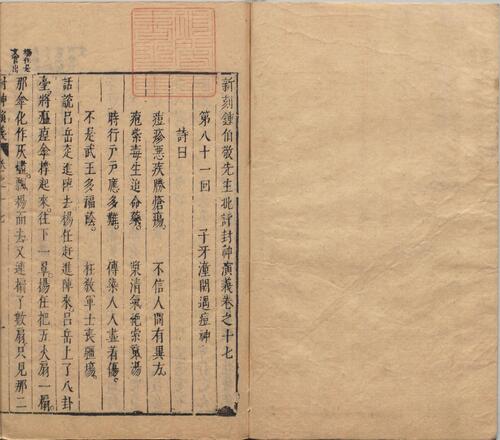 新刻鍾伯敬先生批評封神演義卷之十七
第八十一回 子牙潼關遇痘神
詩曰
痘疹惡疾勝瘡瘍 不信人間有異方
疱紫毒生追命藥 漿清氣絕索魂湯
時行戶戶應多難 傳染人人盡着傷
不是武王多福蔭 枉教軍士喪疆場
話說呂岳走進陣去楊任赶進陣來呂岳上了八卦
臺將瘟㾮傘撑起來往下一罩楊任把五火扇一搧
那傘化作灰燼飄揚而去又連搧了數扇只見那二
封神演義 卷之十七